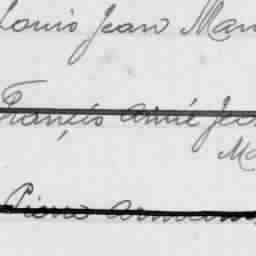 Louis Jean Mar
François Aimé Je
Ma
Pierre